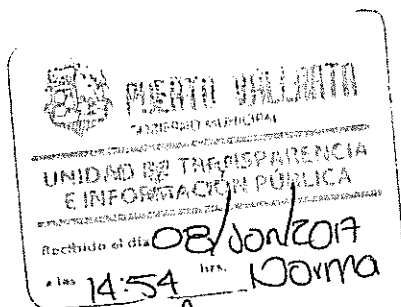 PUERTO VALLARTA
GOBIERNO MUNICIPAL
UNIDAD DE TRANSPARENCIA
E INFORMACIÓN PÚBLICA
Recibido el día 08/Jun/2017
a las 14:54 hrs. Norma